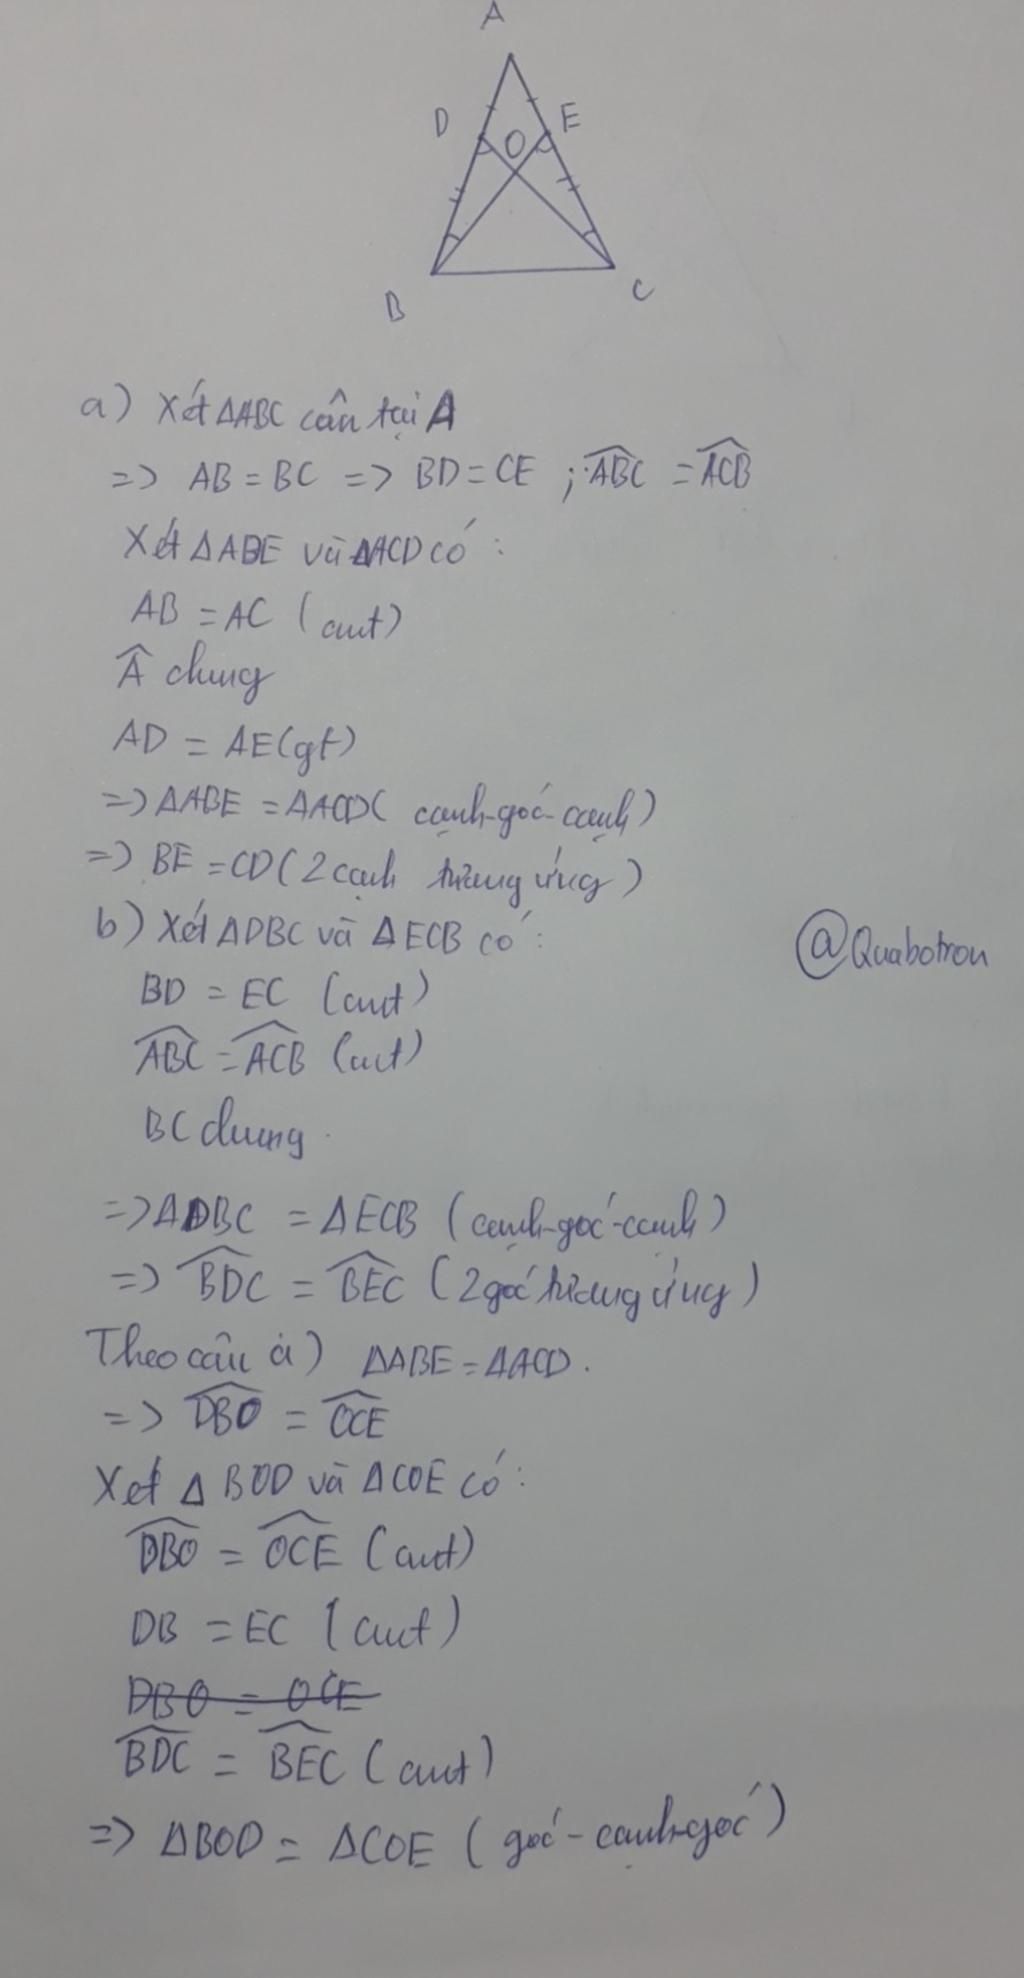 A
D
E
O
B
C
a) Xét ΔABC cân tại A
=> AB = BC => BD = CE ; ABC = ACB
Xét ΔABE và ΔACD có :
AB = AC (cmt)
Â chung
AD = AE (gt)
=> ΔABE = ΔACD ( cạnh-góc-cạnh)
=> BE = CD ( 2 cạnh tương ứng )
b) Xét ΔDBC và ΔECB có :
@Quabotron
BD = EC (cmt)
ABC = ACB (cmt)
BC chung .
=> ΔDBC = ΔECB ( cạnh-góc-cạnh )
=> BDC = BEC ( 2 góc tương ứng )
Theo câu a) ΔABE = ΔACD .
=> DBO = OCE
Xét Δ BOD và ΔCOE có :
DBO = OCE ( cmt)
DB = EC ( cmt )
DBO = OCE
BDC = BEC ( cmt )
=> ΔBOD = ΔCOE ( góc - cạnh-góc )